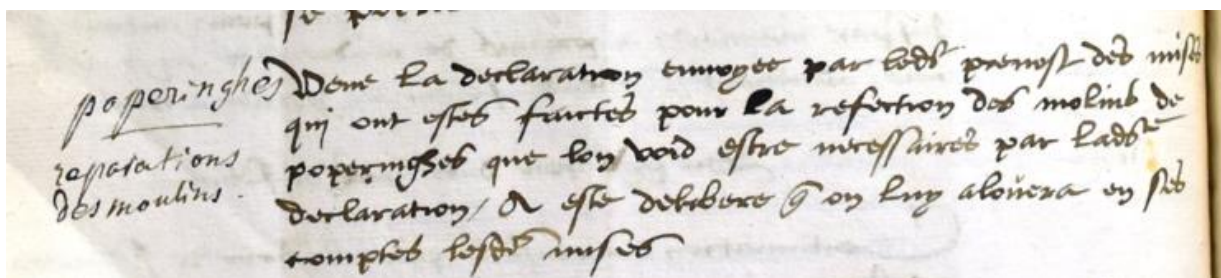 poperinghes
reparations
des moulins.
Veue la declaration envoyee par ledt prevost des mises
qui ont estes faictes pour la refection des molins de
poperinghes que lon void estre necessaires par ladte
declaration / A este delibere q̄ on luy aloüera en ses
comptes lesdts mises